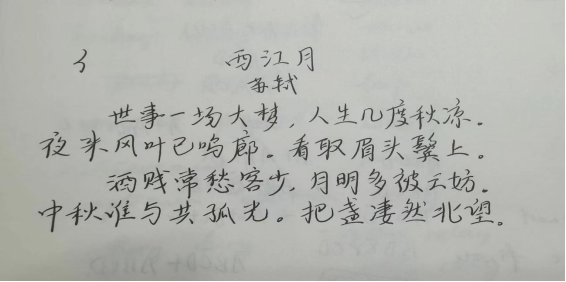 西江月
苏轼
世事一场大梦,人生几度秋凉。
夜来风叶已鸣廊。看取眉头鬓上。
酒贱常愁客少,月明多被云妨。
中秋谁与共孤光。把盏凄然北望。